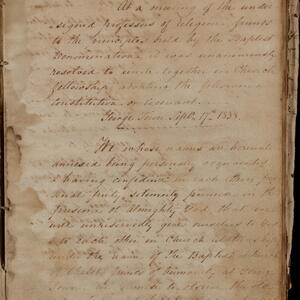 At a meeting of the under
signed Professors of Religion, friends
to the principles held by the Baptist
Denomination, it was unanimously
resolved to unite together in Church
fellowship, adopting the following
Constitution or Covenant.
George Town Sept. 17th 1838.
We whose names are hereunto
annexed being personally acquainted
& having confidence in each others
piety, solemnly in the
presence of Almighty God that we
will unreservedly give ourselves
to each other in Church
under the name of the Baptist
friends of humanity at George
Town